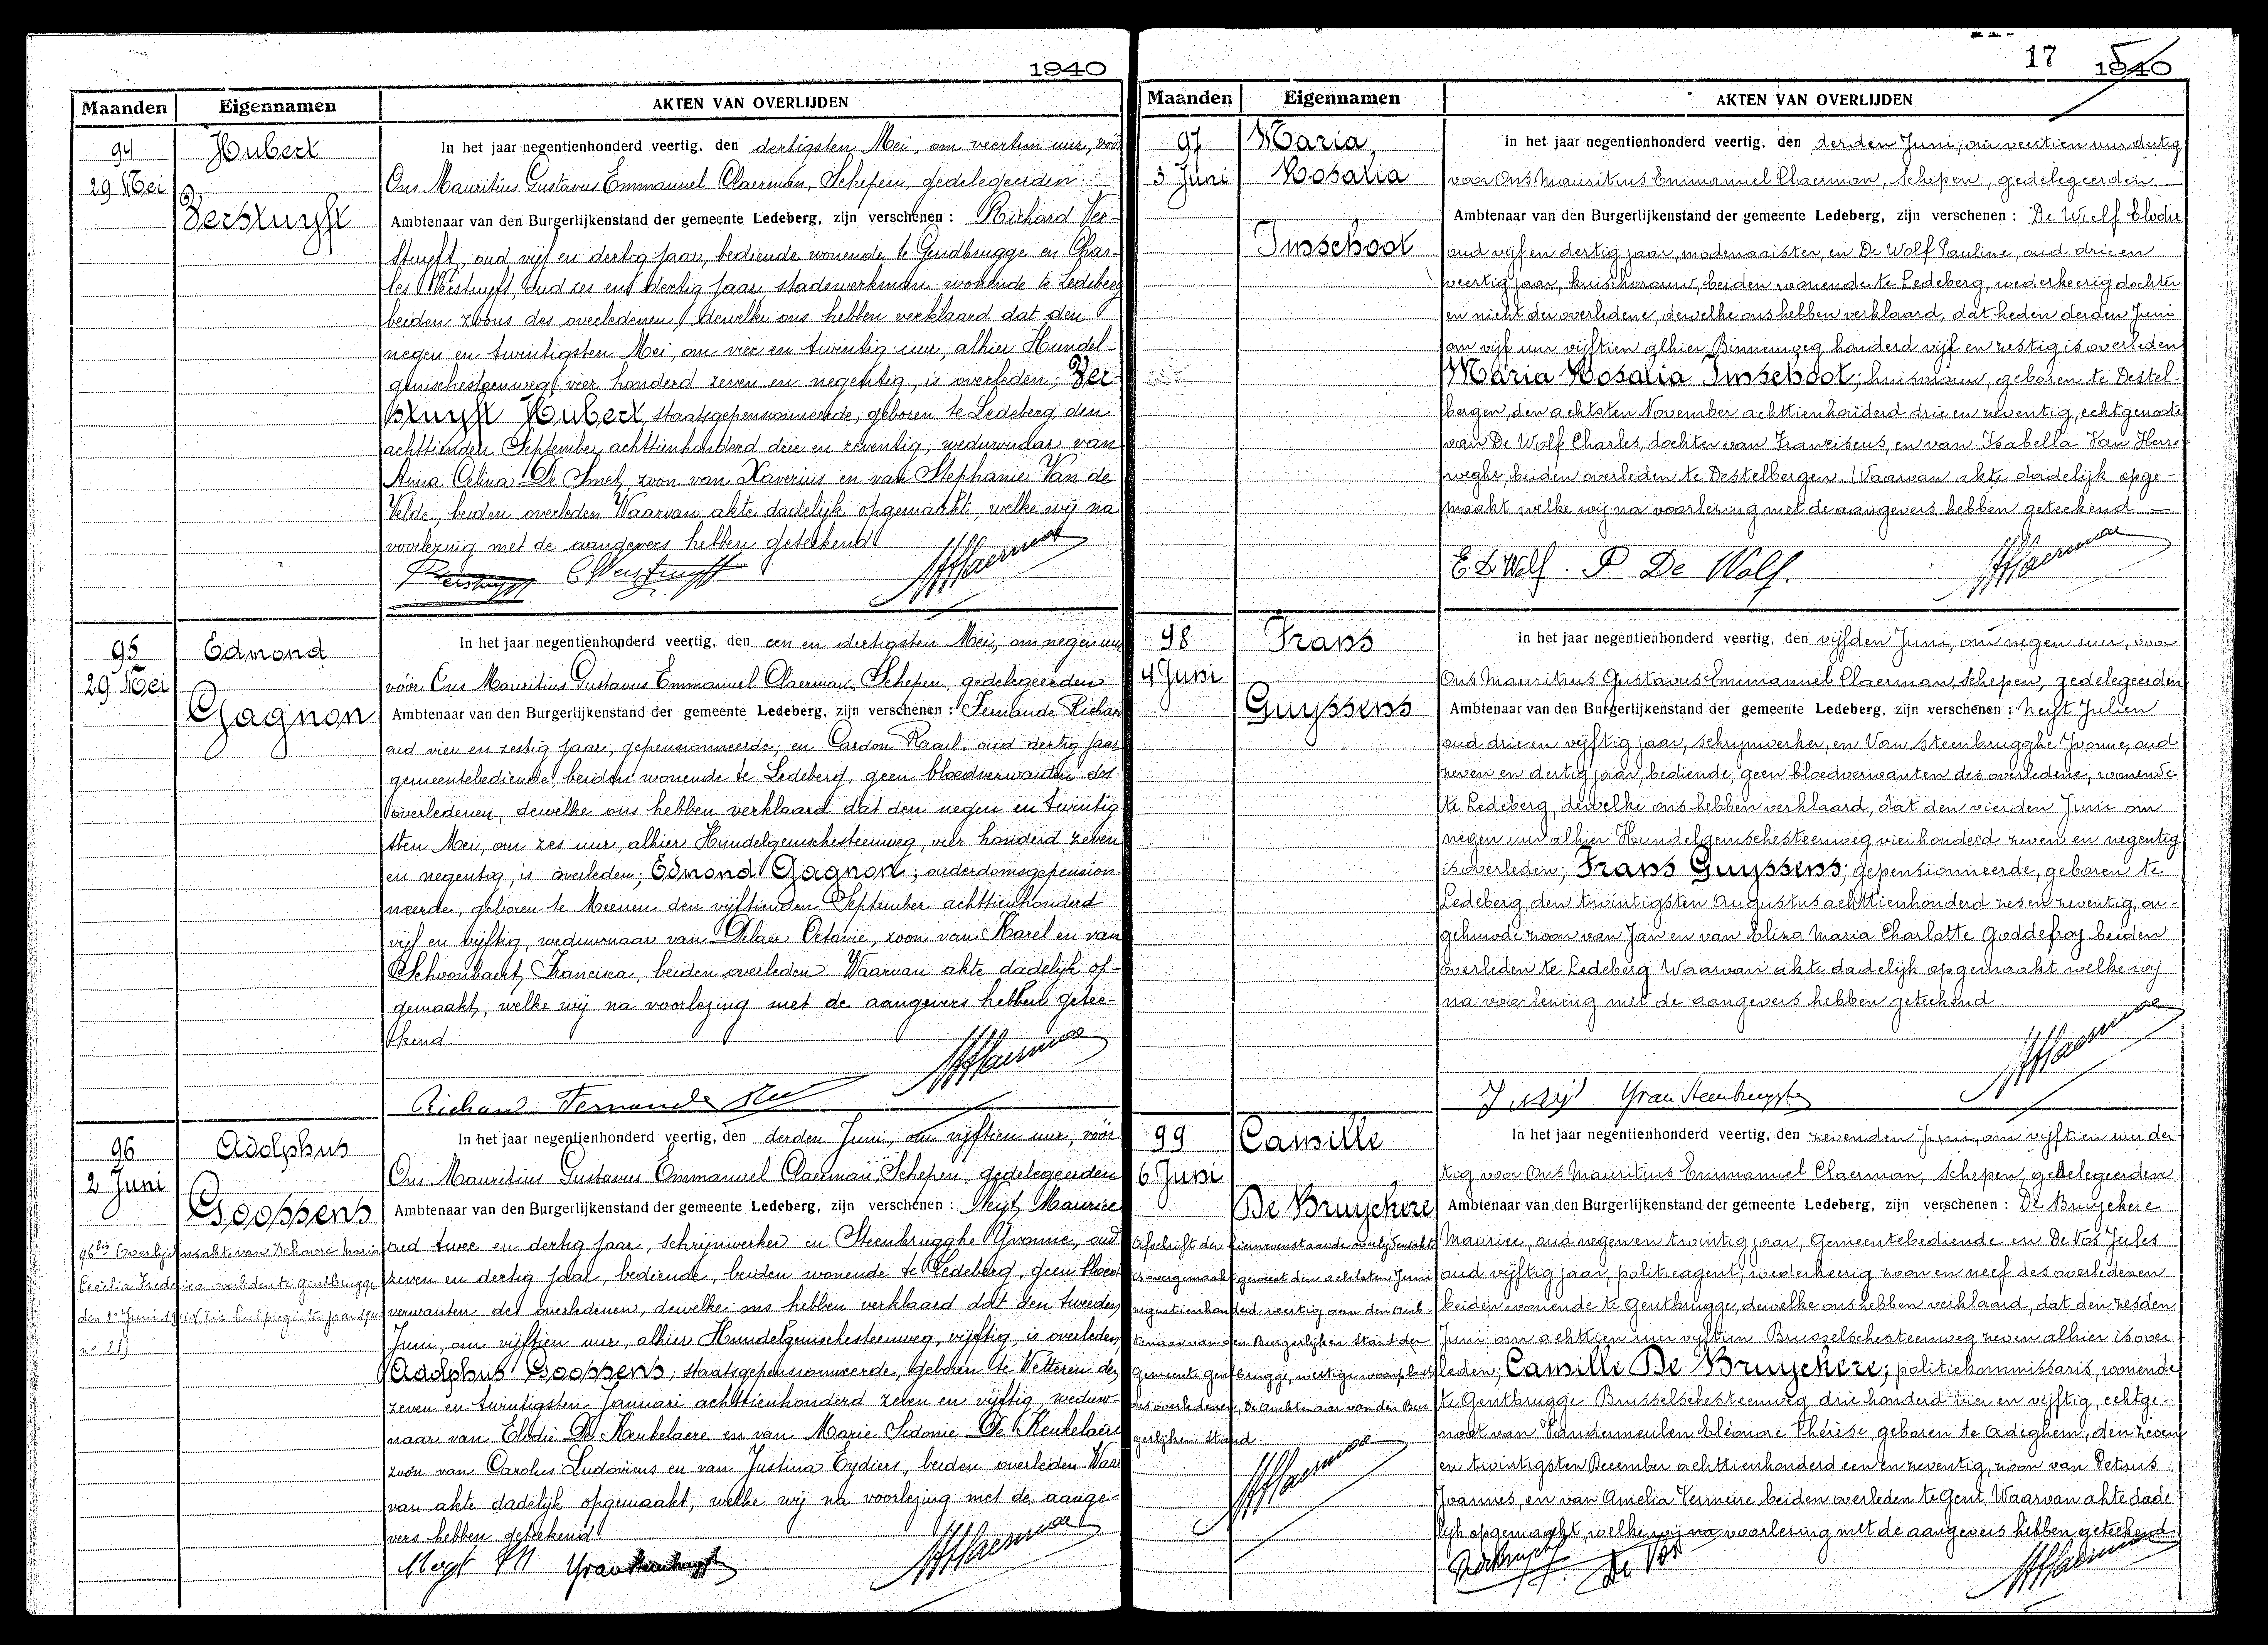 1940
Maanden
Eigennamen
AKTEN VAN OVERLIJDEN
94
29 Mei
Hubert
Verstuyft
In het jaar negentienhonderd veertig, den dertigsten Mei, om veertien uur, vóór
Ons Mauritius Gustavus Emmanuel Claerman, Schepen, gedelegeerden
Ambtenaar van den Burgerlijkenstand der gemeente Ledeberg, zijn verschenen : Richard Ver-
stuyft, oud vijf en dertig jaar, bediende wonende te Gendbrugge en Char-
les Verstuyft, oud zes en dertig jaar, stadswerkman wonende te Ledeberg
beiden zoons des overledenen, dewelke ons hebben verklaard dat den
negen en twintigsten Mei, om vier en twintig uur, alhier Hundel-
gemschesteenweg vier honderd zeven en negentig, is overleden; Ver-
stuyft Hubert, staatsgepensionneerde, geboren te Ledeberg, den
achttienden September achttienhonderd drie en zeventig, weduwnaar van
Anna Celina De Smet, zoon van Xaverius en van Stephanie Van de
Velde, beiden overleden Waarvan akte dadelijk opgemaakt, welke wij na
voorlezing met de aangevers hebben geteekend
95
29 Mei
Edmond
Gagnon
In het jaar negentienhonderd veertig, den een en dertigsten Mei, om negen uur
vóór Ons Mauritius Gustavus Emmanuel Claerman, Schepen, gedelegeerden
Ambtenaar van den Burgerlijkenstand der gemeente Ledeberg, zijn verschenen : Fernande Richard
oud vier en zestig jaar, gepensionneerde; en Cardon Raoul, oud dertig jaar
gemeentebediende, beiden wonende te Ledeberg, geen bloedverwanten des
overledenen, dewelke ons hebben verklaard dat den negen en twintig
sten Mei, om zes uur, alhier Hundelgemschesteenweg, vier honderd zeven
en negentig, is overleden; Edmond Gagnon; ouderdomsgepension-
neerde, geboren te Meenen den vijftienden September achttienhonderd
vijf en vijftig, weduwnaar van Delaer Octavie, zoon van Karel en van
Schoonbaert, Francisca, beiden overleden Waarvan akte dadelijk op-
gemaakt, welke wij na voorlezing met de aangevers hebben getee-
kend
Richard Fernande
96
2 Juni
Adolphus
Goossens
96bis Overlijdensakt van Dehaese Maria
Cecilia overleden te Gentbrugge
den 1 Juni
In het jaar negentienhonderd veertig, den derden Juni, om vijftien uur, vóór
Ons Mauritius Gustavus Emmanuel Claerman, Schepen, gedelegeerden
Ambtenaar van den Burgerlijkenstand der gemeente Ledeberg, zijn verschenen : Neyt Maurice
oud twee en dertig jaar, schrijnwerker en Steenbrugghe Yvonne, oud
zeven en dertig jaar, bediende, beiden wonende te Ledeberg, geen bloed
verwanten des overledenen, dewelke ons hebben verklaard dat den tweeden
Juni, om vijftien uur, alhier Hundelgemschesteenweg, vijftig, is overleden
Adolphus Goossens; staatsgepensionneerde, geboren te Wetteren den
zeven en twintigsten Januari achttienhonderd zeven en vijftig weduw-
naar van Elodie De Keukelaere en van Marie Sidonie De Keukelaere
zoon van Carolus Ludovicus en van Justina Eydiers, beiden overleden Waar
van akte dadelijk opgemaakt, welke wij na voorlezing met de aange-
vers hebben geteekend
17
1940
Maanden
Eigennamen
AKTEN VAN OVERLIJDEN
97
3 Juni
Maria
Rosalia
Imschoot
In het jaar negentienhonderd veertig, den derden Juni, om veertien uur dertig
voor Ons Mauritius Emmanuel Claerman, Schepen, gedelegeerden
Ambtenaar van den Burgerlijkenstand der gemeente Ledeberg, zijn verschenen : De Wolf Elodie
oud vijf en dertig jaar, modenaaister, en De Wolf Pauline, oud drie en
veertig jaar, kuischvrouw, beiden wonende te Ledeberg, wederkeerig dochter
en nicht der overledene, dewelke ons hebben verklaard, dat heden derden Juni
om vijf uur vijftien alhier Binnenweg honderd vijf en zestig is overleden
Maria Rosalia Imschoot; huisvrouw, geboren te Destel-
bergen, den achtsten November achttienhonderd drie en zeventig, echtgenoote
van De Wolf Charles, dochter van Franciscus, en van Isabella Van Herre
weghe, beiden overleden te Destelbergen. Waarvan akte dadelijk opge-
maakt welke wij na voorlezing met de aangevers hebben geteekend
E. De Wolf. P De Wolf.
98
4 Juni
Frans
Guyssens
In het jaar negentienhonderd veertig, den vijfden Juni, om negen uur, voor
Ons Mauritius Gustavus Emmanuel Claerman, Schepen, gedelegeerden
Ambtenaar van den Burgerlijkenstand der gemeente Ledeberg, zijn verschenen : Neyt Julien
oud drie en vijftig jaar, schrijnwerker, en Van Steenbrugghe Yvonne, oud
zeven en dertig jaar, bediende, geen bloedverwanten des overledene, wonende
te Ledeberg, dewelke ons hebben verklaard, dat den vierden Juni om
negen uur alhier Hundelgemschesteenweg vierhonderd zeven en negentig
is overleden; Frans Guyssens; gepensionneerde, geboren te
Ledeberg, den twintigsten Augustus achttienhonderd zes en zeventig, on-
gehuwde zoon van Jan en van Elisa Maria Charlotte Goddefroy beiden
overleden te Ledeberg Waarvan akte dadelijk opgemaakt welke wij
na voorlezing met de aangevers hebben geteekend.
99
6 Juni
Camille
De Bruyckere
Afschrift der hiernevenstaande overlijdensakte
is overgemaakt geweest den achtsten Juni
negentienhonderd veertig aan den Amb-
tenaar van den Burgerlijken Stand der
Gemeente Gentbrugge, wettige woonplaats
des overledenen, De Ambtenaar van den Bur
gerlijken Stand.
In het jaar negentienhonderd veertig, den zevenden Juni, om vijftien uur der-
tig voor Ons Mauritius Emmanuel Claerman, Schepen, gedelegeerden
Ambtenaar van den Burgerlijkenstand der gemeente Ledeberg, zijn verschenen : De Bruyckere
Maurice, oud negen en twintig jaar, Gemeentebediende en De Vos Jules
oud vijftig jaar, politieagent, wederkeerig zoon en neef des overledenen
beiden wonende te Gentbrugge, dewelke ons hebben verklaard, dat den zesden
Juni om achttien uur vijftien Brusselschesteenweg zeven alhier is over
leden; Camille De Bruyckere; politiekommissaris, wonende
te Gentbrugge Brusselschesteenweg drie honderd vier en vijftig, echtge-
noot van Vandermeulen Eléonore Thérèse, geboren te Adeghem, den zeven
en twintigsten December achttienhonderd een en zeventig, zoon van Petrus
Joannes, en van Amelia Vermeire beiden overleden te Gent, Waarvan akte dade
lijk opgemaakt, welke wij na voorlezing met de aangevers hebben geteekend.
De Vos